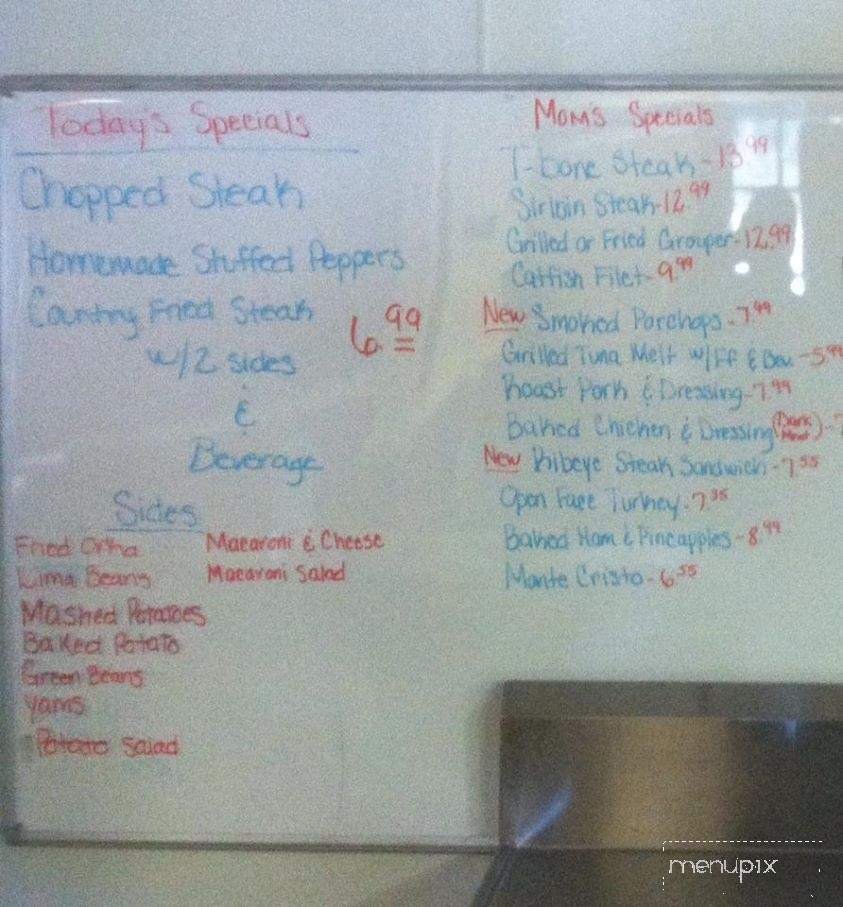 Today's Specials
Chopped Steak
Homemade Stuffed Peppers
Country Fried Steak
6.99
w/2 sides
&
Beverage
Sides
Fried Okra
Lima Beans
Mashed Potatoes
Baked Potato
Green Beans
Yams
Potato Salad
Macaroni & Cheese
Macaroni Salad
Mom's Specials
T-bone Steak-13.99
Sirloin Steak-12.99
Grilled or Fried Grouper-12.99
Catfish Filet-9.99
New Smoked Porchops-7.99
Grilled Tuna Melt w/FF & Bev-5.99
Roast Pork & Dressing-7.99
Baked Chicken & Dressing (Dark Meat)-7
New Ribeye Steak Sandwich-7.55
Open Face Turkey-7.35
Baked Ham & Pineapples-8.99
Monte Cristo-6.55
menupix